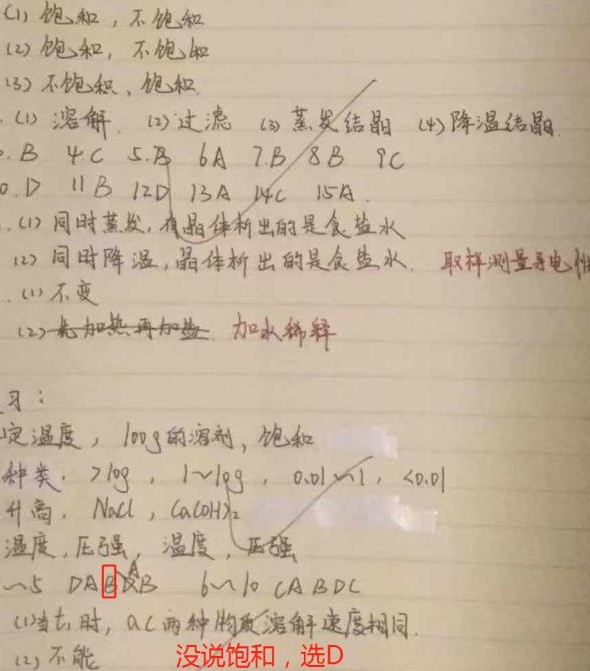 (1) 饱和，不饱和
(2) 饱和，不饱和
(3) 不饱和、饱和
(1) 溶解 (2) 过滤 (3) 蒸发结晶 (4) 降温结晶.
B 4C 5.B 6A 7.B 8B 9C
0.D 11B 12D 13A 14C 15A.
(1) 同时蒸发,有晶体析出的是食盐水
(2) 同时降温,晶体析出的是食盐水. 取样测量导电性
(1) 不变
(2) 先加热再加盐 加水稀释
习：
定温度，100g的溶剂、饱和
种类. >10g，1~10g，0.01~1，<0.01
升高. NaCl，Ca(OH)₂
温度,压强，温度，压强
~5 DAB A B 6~10 CABDC
(1)当t₁时，ac两种物质溶解速度相同.
(2) 不能
没说饱和，选D